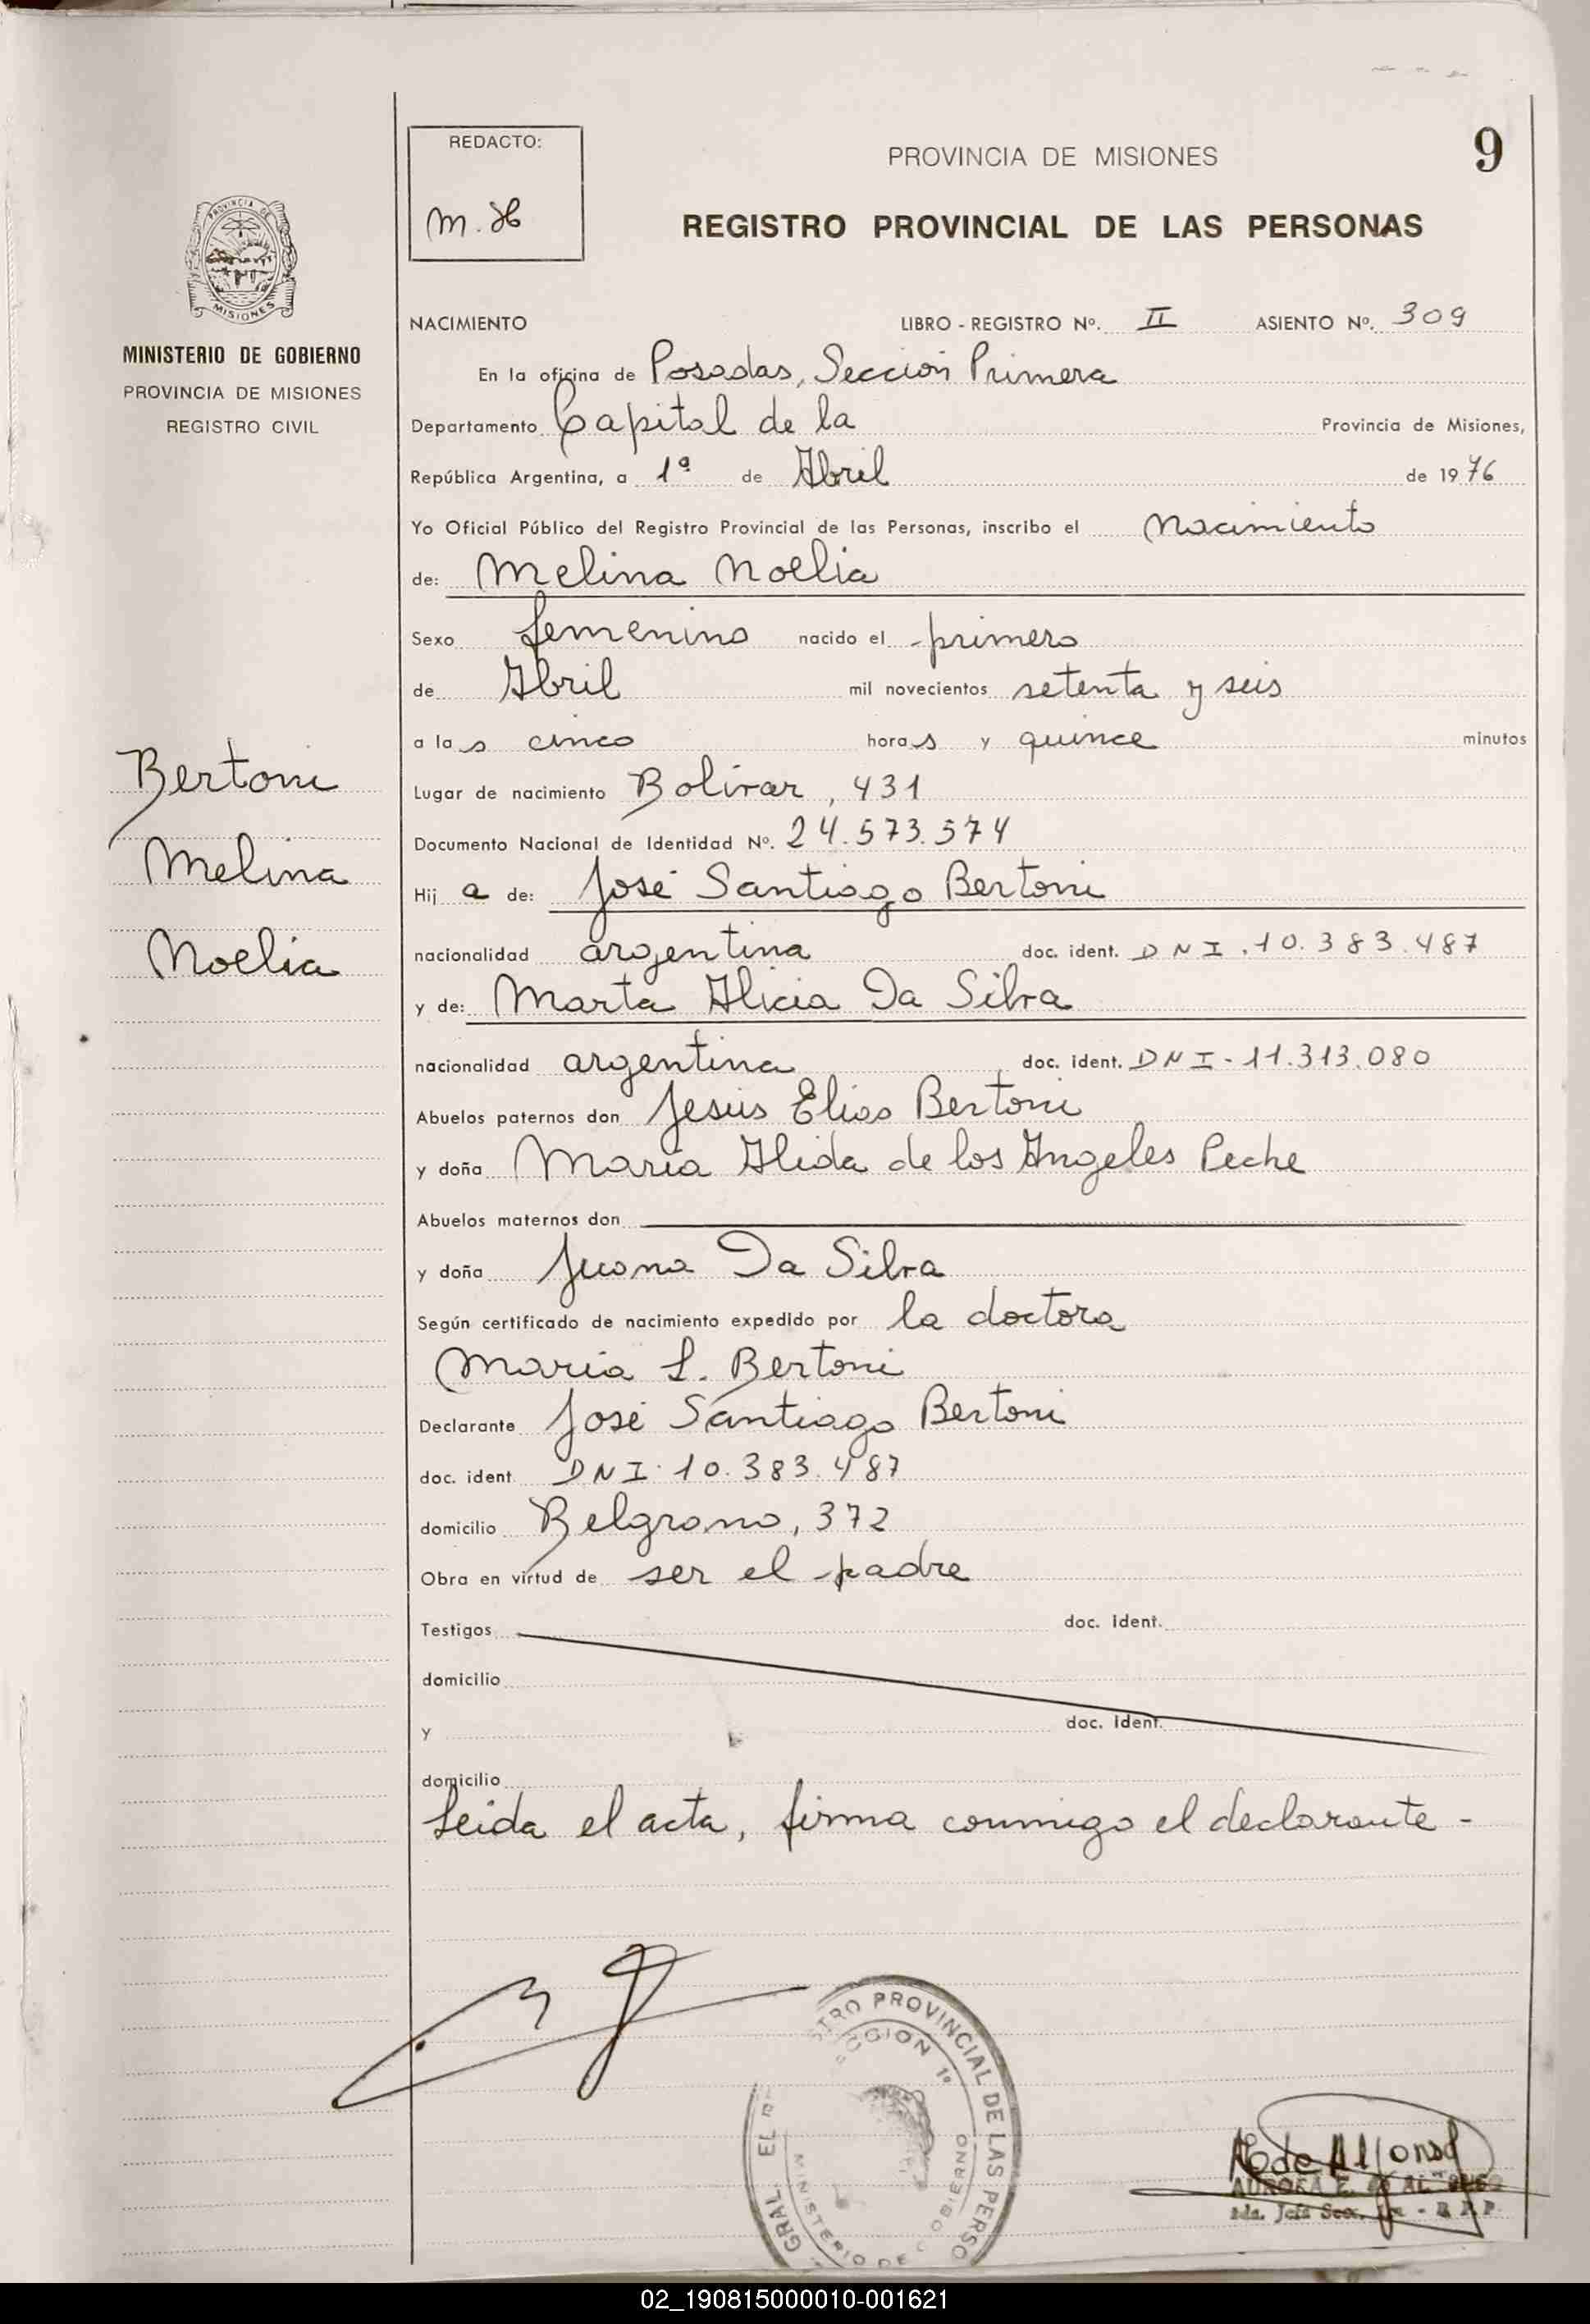 REDACTO:
m. H
PROVINCIA DE MISIONES
9
REGISTRO PROVINCIAL DE LAS PERSONAS
PROVINCIA DE
MISIONES
MINISTERIO DE GOBIERNO
PROVINCIA DE MISIONES
REGISTRO CIVIL
NACIMIENTO LIBRO - REGISTRO Nº. II ASIENTO Nº. 309
En la oficina de Posadas, Sección Primera
Departamento Capital de la Provincia de Misiones,
República Argentina, a 1º de Abril de 1976
Yo Oficial Público del Registro Provincial de las Personas, inscribo el Nacimiento
de: Melina Noelia
Sexo femenino nacido el primero
de Abril mil novecientos setenta y seis
a las cinco horas y quince minutos
Lugar de nacimiento Bolivar, 431
Documento Nacional de Identidad Nº. 24.573.574
Hija de: José Santiago Bertoni
nacionalidad argentina doc. ident. DNI. 10.383.487
y de: Marta Alicia Da Silva
nacionalidad argentina doc. ident. DNI - 11.313.080
Abuelos paternos don Jesús Elias Bertoni
y doña María Alida de los Angeles Peche
Abuelos maternos don
y doña Juana Da Silva
Según certificado de nacimiento expedido por la doctora
María L. Bertoni
Declarante José Santiago Bertoni
doc. ident. DNI. 10.383.487
domicilio Belgrano, 372
Obra en virtud de ser el padre
Testigos doc. ident.
domicilio
y doc. ident.
domicilio
Leida el acta, firma conmigo el declarante -
Bertoni
Melina
Noelia
PROVINCIAL DE LAS PERSO
GRAL. EL
CCION 1º
MINISTERIO DE GOBIERNO
E. de Alfonso
AURORA E. DE ALFONSO
Jefa Secc. 1ra - R.P.P.
02_190815000010-001621